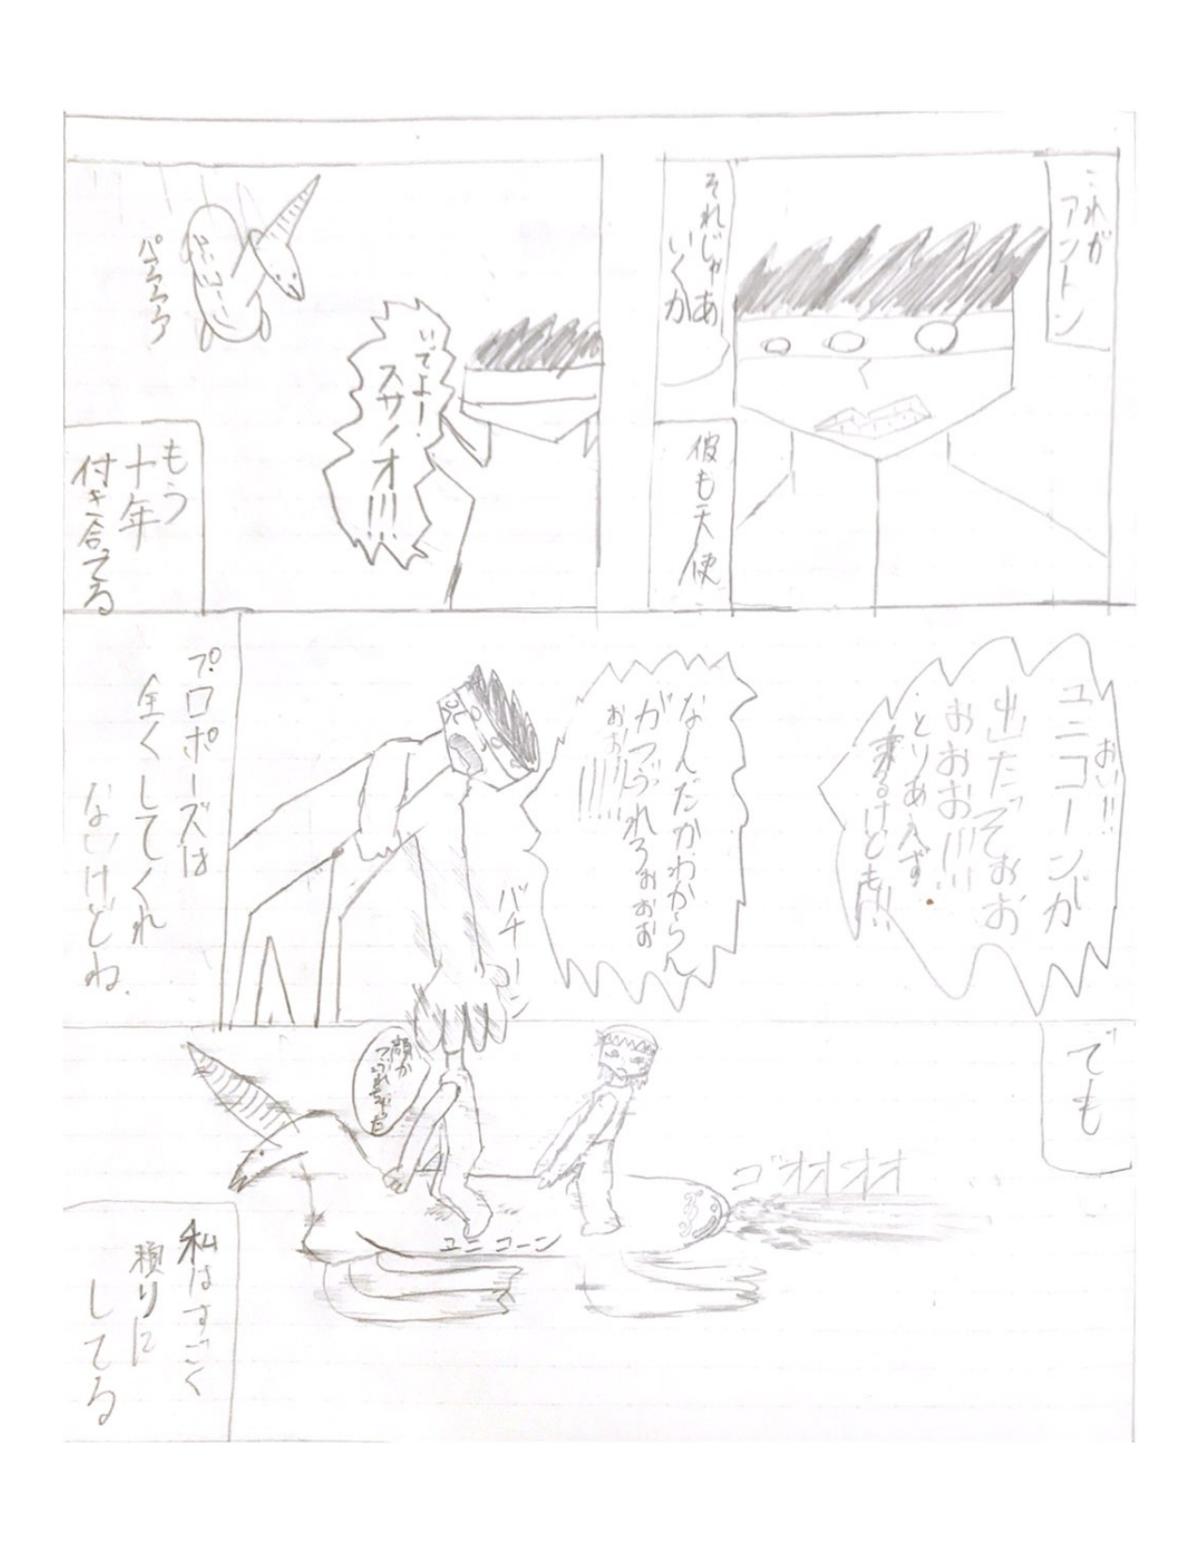 これが
アントン
それじゃあ
いくか
彼も天使
いでよー!
スサノオ!!!
パァァァァ
もう
十年
付き合ってる
おい!!
ユニコーンが
出たぞぉぉ
おおお!!!!
とりあえず
乗るけども!!
なんだかわからん
がつぶれろぉぉぉ
おお!!!!!
バチーン
プロポーズは
全くしてくれ
ないけどね.
でも
顔が
つぶれちゃった
ゴオオオオ
ユニコーン
私はすごく
頼りに
してる